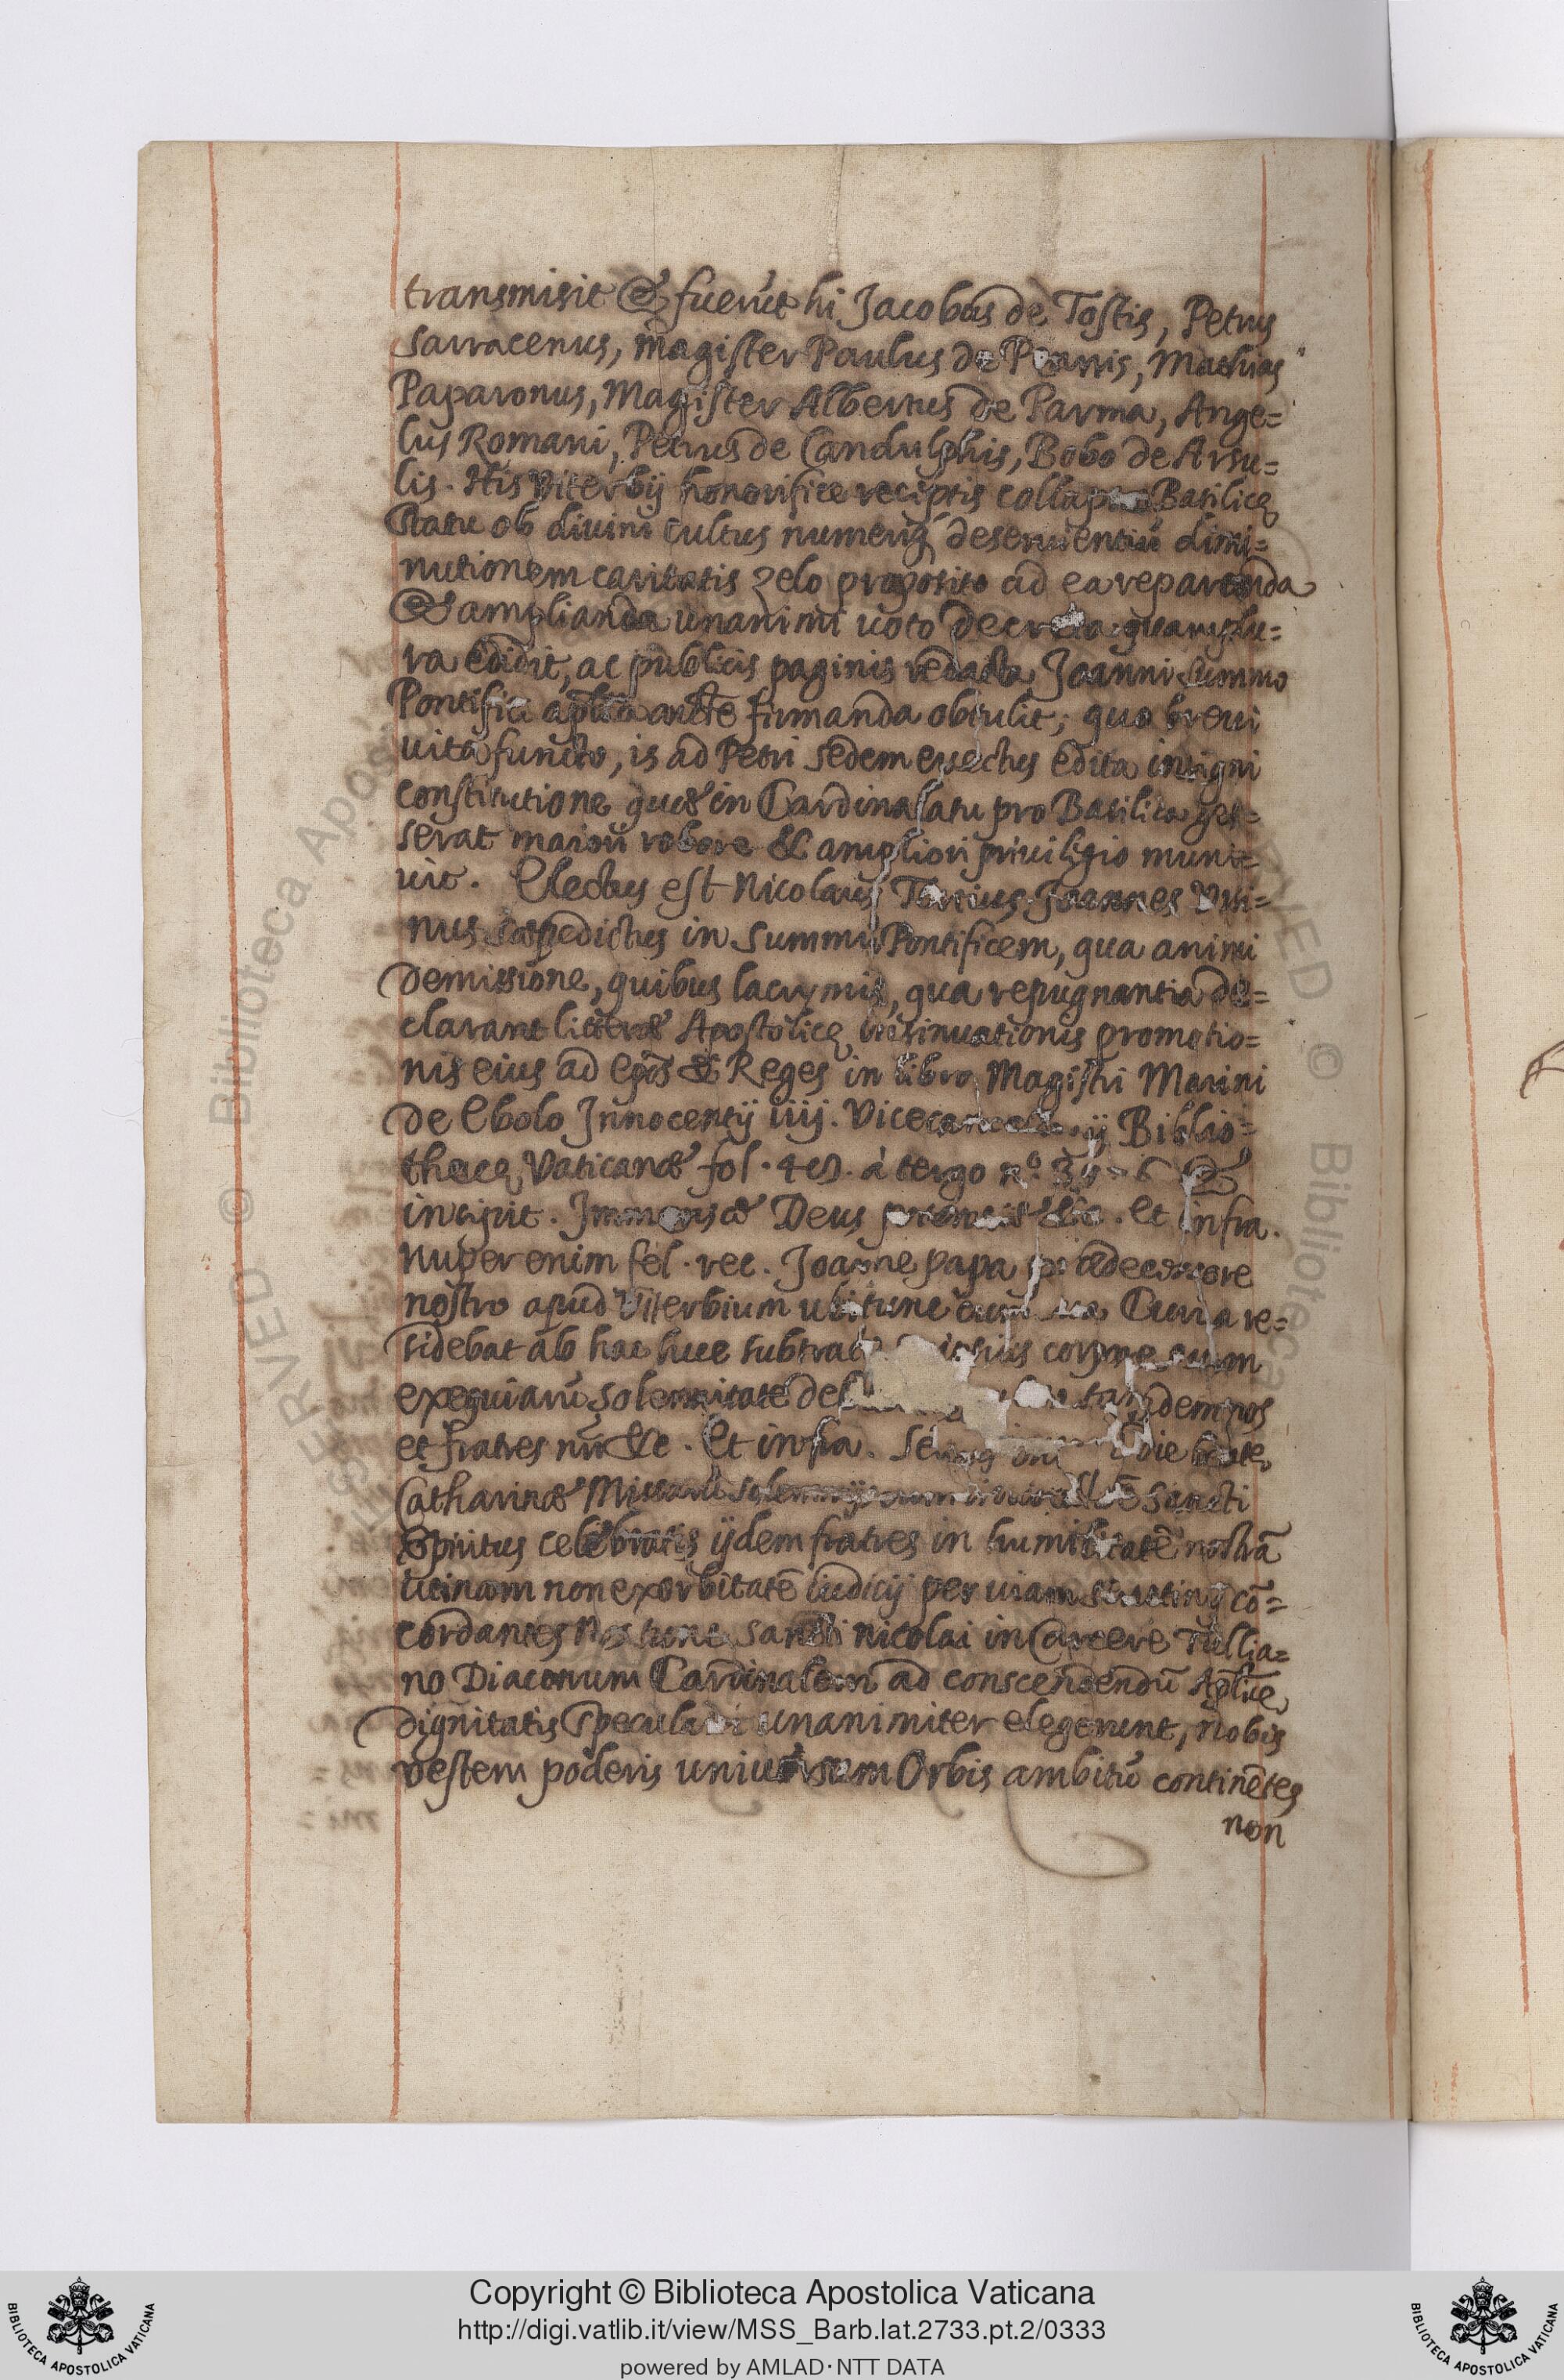 transmisit & fuerūt hi Jacobus de Tostis, Petrus
Sarracenus, magister Paulus de Mathias
Paparonus, Magister Albertus de Parma, Ange=
lus Romani, Petrus de Candulphis, Bobo de Arsu=
lis. His Viterbij honorifice receptis Basilicę
statu ob divini cultus deseruientiū dimi=
nutionem caritatis zelo proposito ad ea reparanda
& amplianda unanimi uoto decreta quamplu=
ra edidit, ac publicis paginis redacta Joanni summo
Pontifici firmanda obtulit; quo breui
uita functo, is ad Petri sedem euectus edita insigni
constitutione quæ in Cardinalatu pro Basilica ges=
serat maiori robore & ampliori priuilegio muni=
uit. Electus est Nicolaus Tertius Joannes Vrsi=
nus in Summū Pontificem, qua animi
demissione, quibus lacrymis, qua repugnantia de=
clarant litteræ Apostolicę insinuationis promotio=
nis eius ad Epōs & Reges in libro Magistri Marini
de Ebolo Innocentij iiij. Biblio=
thecę Vaticanæ fol. à tergo nº.
incipit. Deus &c. et infra.
Nuper enim fel. rec. Joanne papa prædecessore
nostro apud Viterbium ubi tunc cum sua Curia re=
sidebat ab hac luce corpore cum
exequiarū solemnitate tandem nos
et fratres nrī &c. Et infra. die beatę
Catharinæ Missarū Sancti
Spiritus celebratis ijdem fratres in humilitatē nostrā
utinam non exorbitatē iudicij per uiam scrutinij cō=
cordantes Nos tunc sancti Nicolai in Carcere Tullia=
no Diaconum Cardinalem ad conscendendū Aplicę
dignitatis unanimiter elegerunt, nobis
vestem poderis uniuersam Orbis ambitū continētes
non
Copyright © Biblioteca Apostolica Vaticana
http://digi.vatlib.it/view/MSS_Barb.lat.2733.pt.2/0333
powered by AMLAD·NTT DATA
BIBLIOTECA APOSTOLICA VATICANA
BIBLIOTECA APOSTOLICA VATICANA